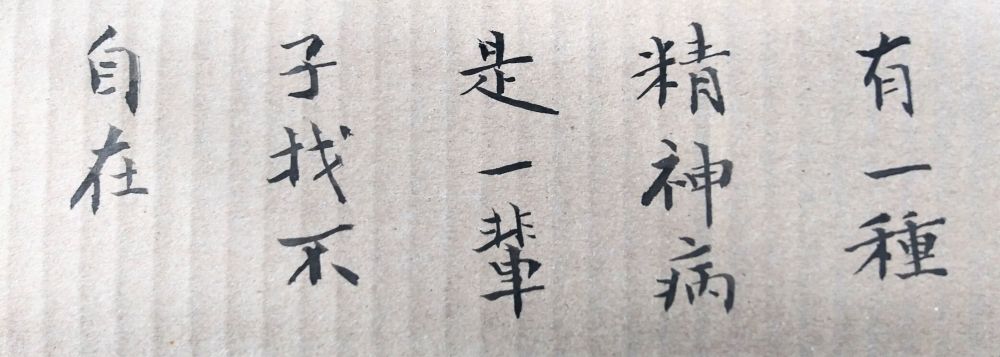 有一種
精神病
是一輩
子找不
自在